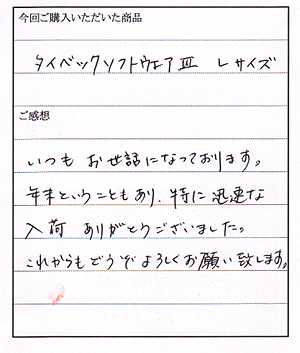 今回ご購入いただいた商品
タイベックソフトウェアⅢ Lサイズ
ご感想
いつも お世話になっております。
年末ということもあり、特に迅速な
入荷 ありがとうございました。
これからもどうぞよろしくお願い致します。